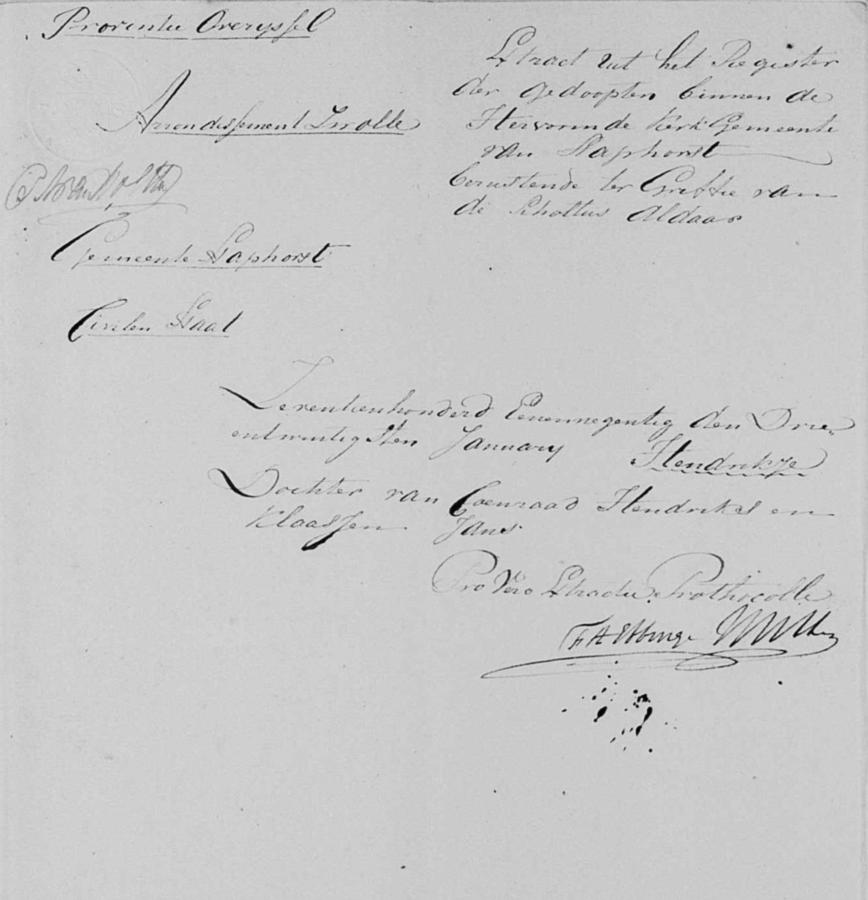 Provintie Overijssel
Arrondissement Zwolle
Gemeente Staphorst
Civilen Staat
Extract uit het Register
der gedoopten binnen de
Hervormde Kerk Gemeente
van Staphorst
berustende ter Griffie van
de Scholtus Aldaar
Zeventienhonderd Eenennegentig den Drie
entwintigsten January Hendrikje
Dochter van Coenraad Hendriks en
Klaasjen Jans
Pro Vero Extractu Prothocolle